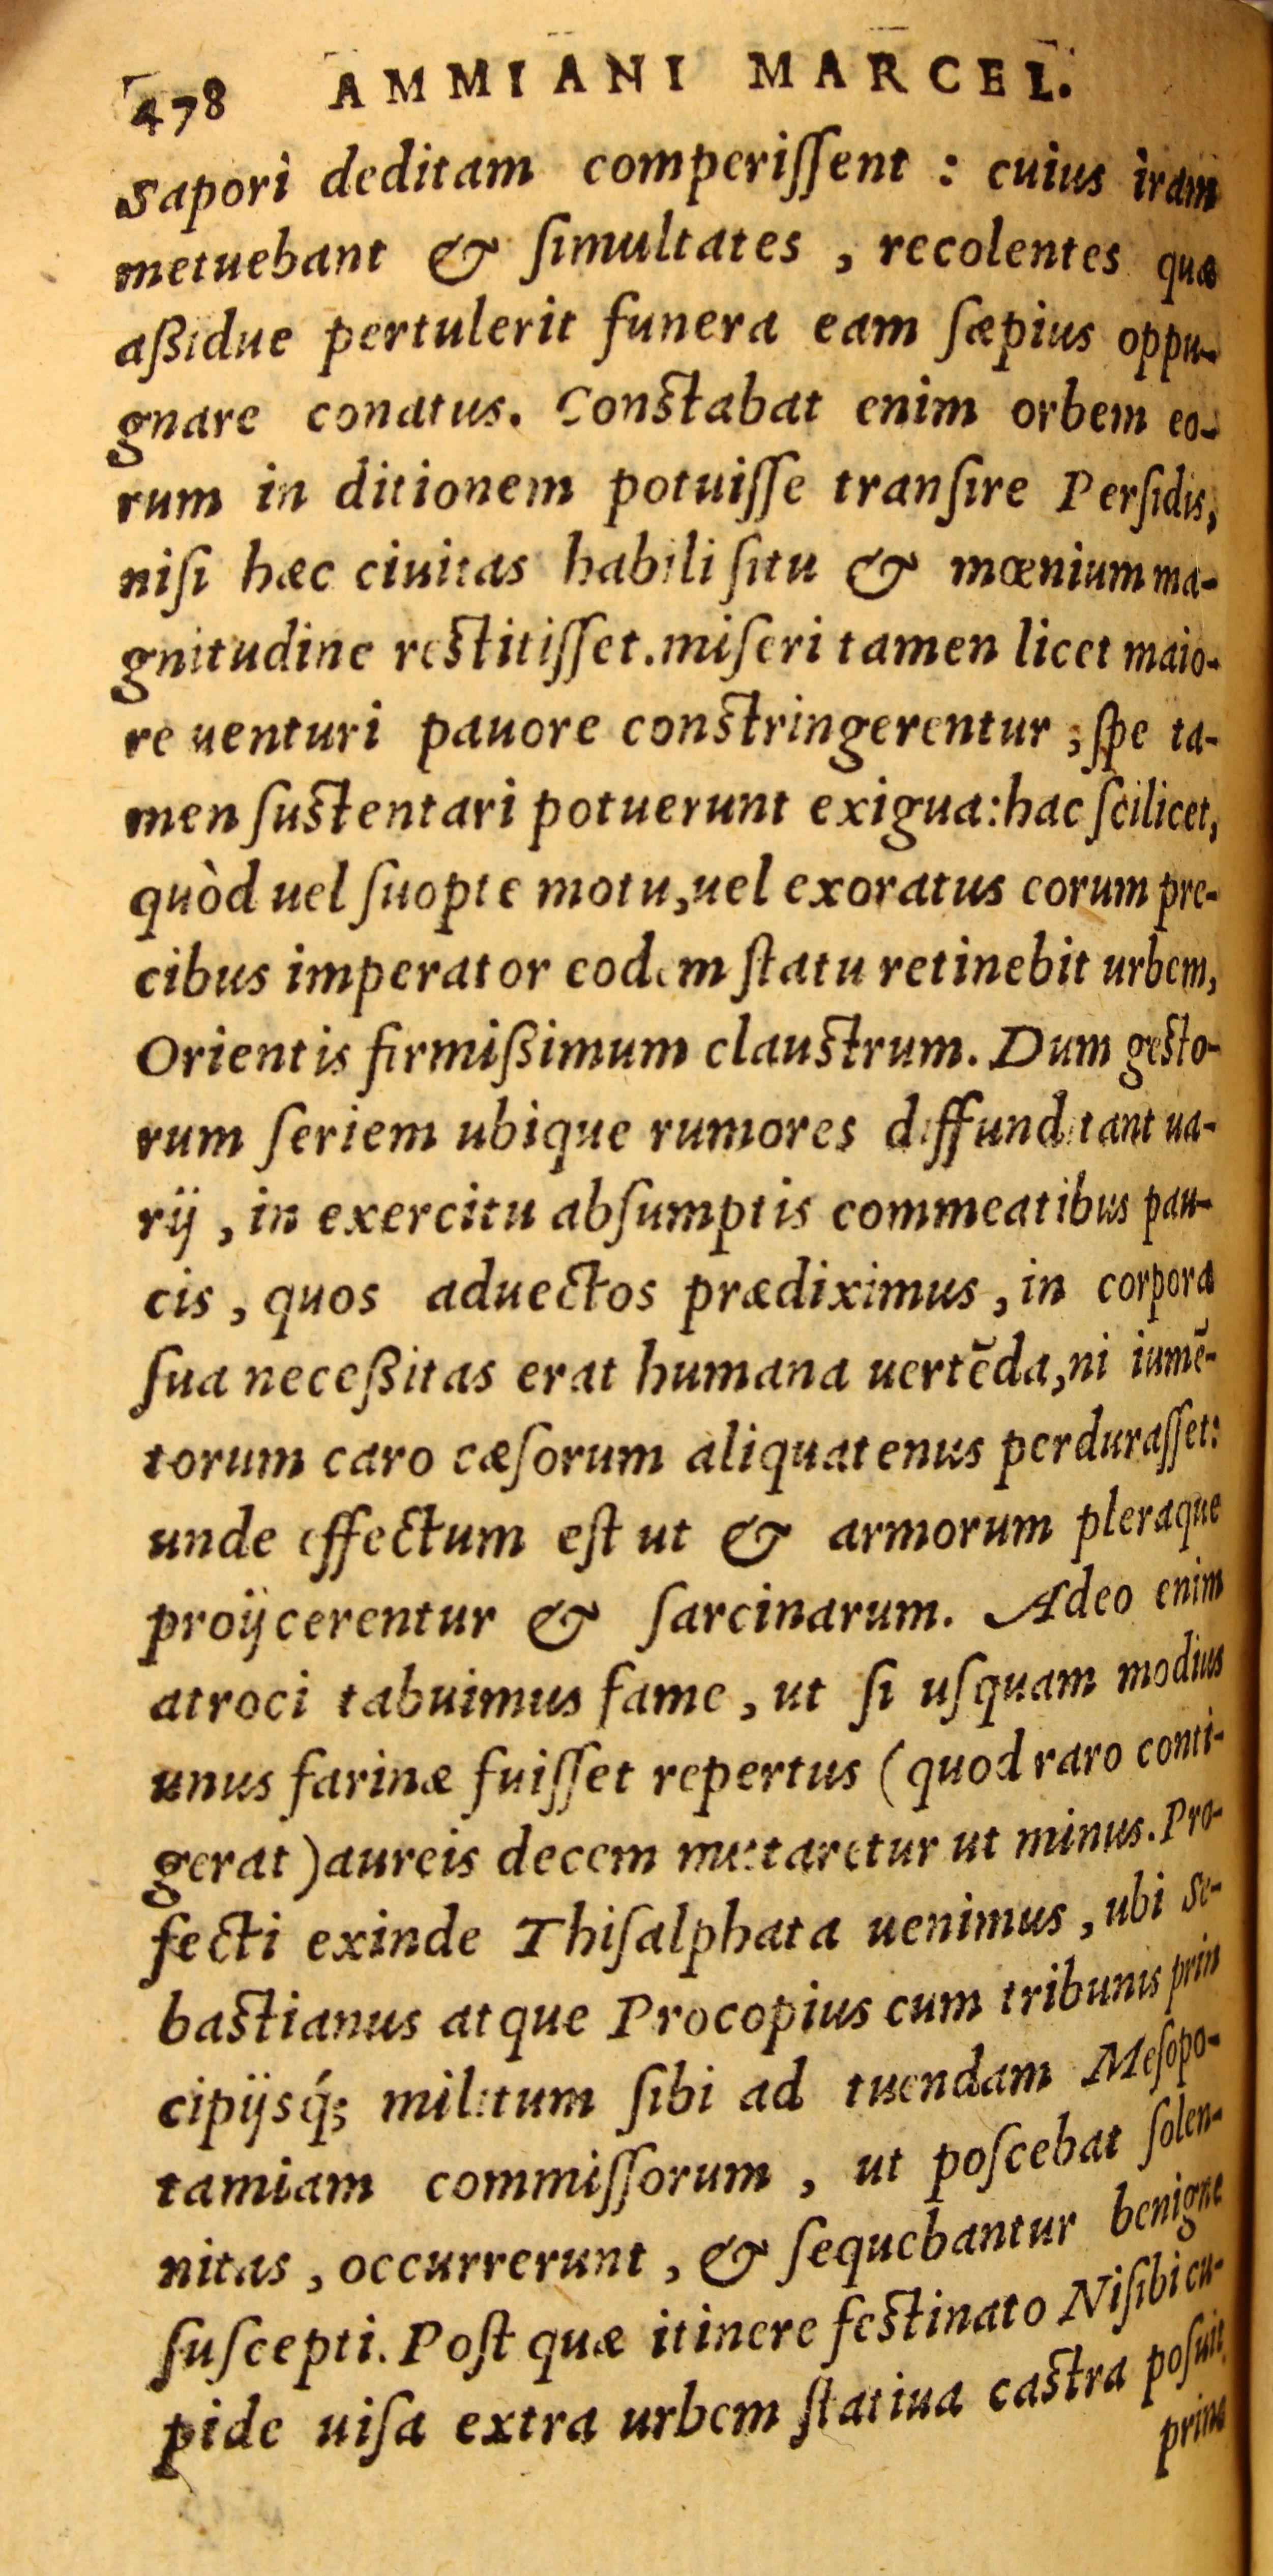 478 AMMIANI MARCEL.
Sapori deditam comperiſſent : cuius iram
metuebant & ſimultates , recolentes quæ
aßidue pertulerit funera eam ſæpius oppu-
gnare conatus. Conſtabat enim orbem eo-
rum in ditionem potuiſſe tranſire Perſidis,
niſi hæc ciuitas habili ſitu & mœnium ma-
gnitudine reſtitiſſet. miſeri tamen licet maio-
re uenturi pauore conſtringerentur , ſpe ta-
men ſuſtentari potuerunt exigua: hac ſcilicet,
quòd uel ſuopte motu, uel exoratus eorum pre-
cibus imperator eodem ſtatu retinebit urbem,
Orientis firmißimum clauſtrum. Dum geſto-
rum ſeriem ubique rumores diffunditant ua-
rij , in exercitu abſumptis commeatibus pau-
cis , quos aduectos prædiximus , in corpora
ſua neceßitas erat humana uertẽda, ni iumẽ-
torum caro cæſorum aliquatenus perduraſſet:
unde effectum eſt ut & armorum pleraque
proijcerentur & ſarcinarum. Adeo enim
atroci tabuimus fame , ut ſi uſquam modius
unus farinæ fuiſſet repertus (quod raro conti-
gerat) aureis decem mutaretur ut minus. Pro-
fecti exinde Thiſalphata uenimus , ubi Se-
baſtianus atque Procopius cum tribunis prin
cipijsq́; militum ſibi ad tuendam Meſopo-
tamiam commiſſorum , ut poſcebat ſolen-
nitas , occurrerunt , & ſequebantur benigne
ſuſcepti. Poſt quæ itinere feſtinato Niſibi cu-
pide uiſa extra urbem ſtatiua caſtra poſuit
prin